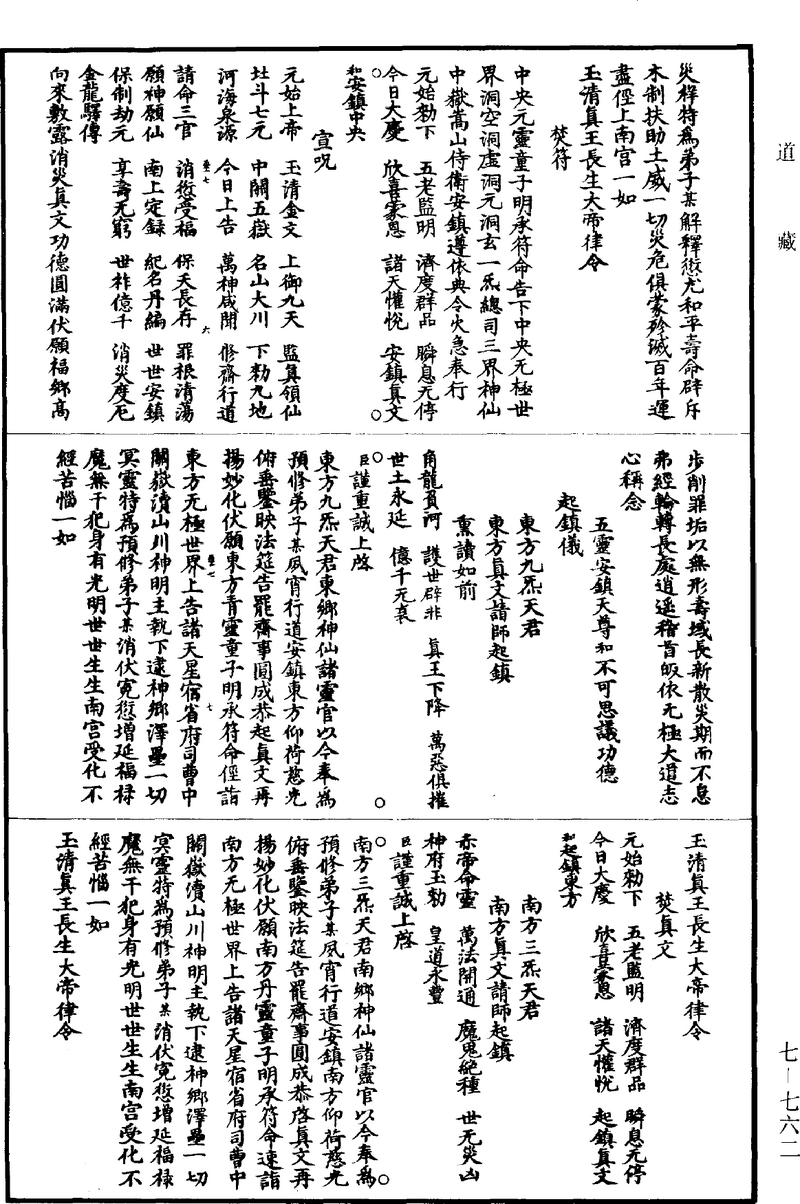 道藏
災牉特為弟子某解釋愆尤和平壽命辟斥
木制扶助土威一切災危俱蒙殄滅百年運
盡徑上南宮一如
玉清真王長生大帝律令
焚符
中央元靈童子明承符命告下中央无極世
界洞空洞虛洞元洞玄一炁總司三界神仙
中嶽嵩山侍衛安鎮遵依典令火急奉行
元始勑下 五老監明 濟度群品 瞬息无停
今日大慶 欣喜蒙恩 諸天懽悅 安鎮真文
和安鎮中央
宣呪
元始上帝 玉清金文 上御九天 監真領仙
北斗七元 中關五嶽 名山大川 下勑九地
河海泉源 今日上告 萬神咸聞 修齋行道
請命三官 消愆受福 保天長存 罪根清蕩
願神願仙 南上定錄 紀名丹編 世世安鎮
保制劫元 享壽无窮 世祚億千 消災度厄
金龍驛傳
向來敷露消災真文功德圓滿伏願福鄉高
步削罪垢以無形壽域長新散災期而不息
弗經輪轉長處逍遙稽首皈依无極大道志
心稱念
五靈安鎮天尊和不可思議功德
起鎮儀
東方九炁天君
東方真文請師起鎮
熏讀如前
角龍負河 護世辟非 真王下降 萬惡俱摧
世土永延 億千无衰
臣謹重誠上啓
東方九炁天君東鄉神仙諸靈官以今奉為
預修弟子某夙宵行道安鎮東方仰荷慈光
俯垂鑒映法筵告罷齋事圓成恭起真文再
揚妙化伏願東方青靈童子明承符命徑詣
東方无極世界上告諸天星宿省府司曹中
關嶽瀆山川神明主執下逮神鄉澤壘一切
冥靈特為預修弟子某消伏冤愆增延福祿
魔無干犯身有光明世世生生南宮受化不
經苦惱一如
玉清真王長生大帝律令
焚真文
元始勑下 五老監明 濟度群品 瞬息无停
今日大慶 欣喜蒙恩 諸天懽悅 起鎮真文
和起鎮東方
南方三炁天君
南方真文請師起鎮
赤帝命靈 萬法開通 魔鬼絕種 世无災凶
神府玉勑 皇道永豐
臣謹重誠上啓
南方三炁天君南鄉神仙諸靈官以今奉為
預修弟子某夙宵行道安鎮南方仰荷慈光
俯垂鑒映法筵告罷齋事圓成恭啓真文再
揚妙化伏願南方丹靈童子明承符命速詣
南方无極世界上告諸天星宿省府司曹中
關嶽瀆山川神明主執下逮神鄉澤壘一切
冥靈特為預修弟子某消伏冤愆增延福祿
魔無干犯身有光明世世生生南宮受化不
經苦惱一如
玉清真王長生大帝律令
七－七六二